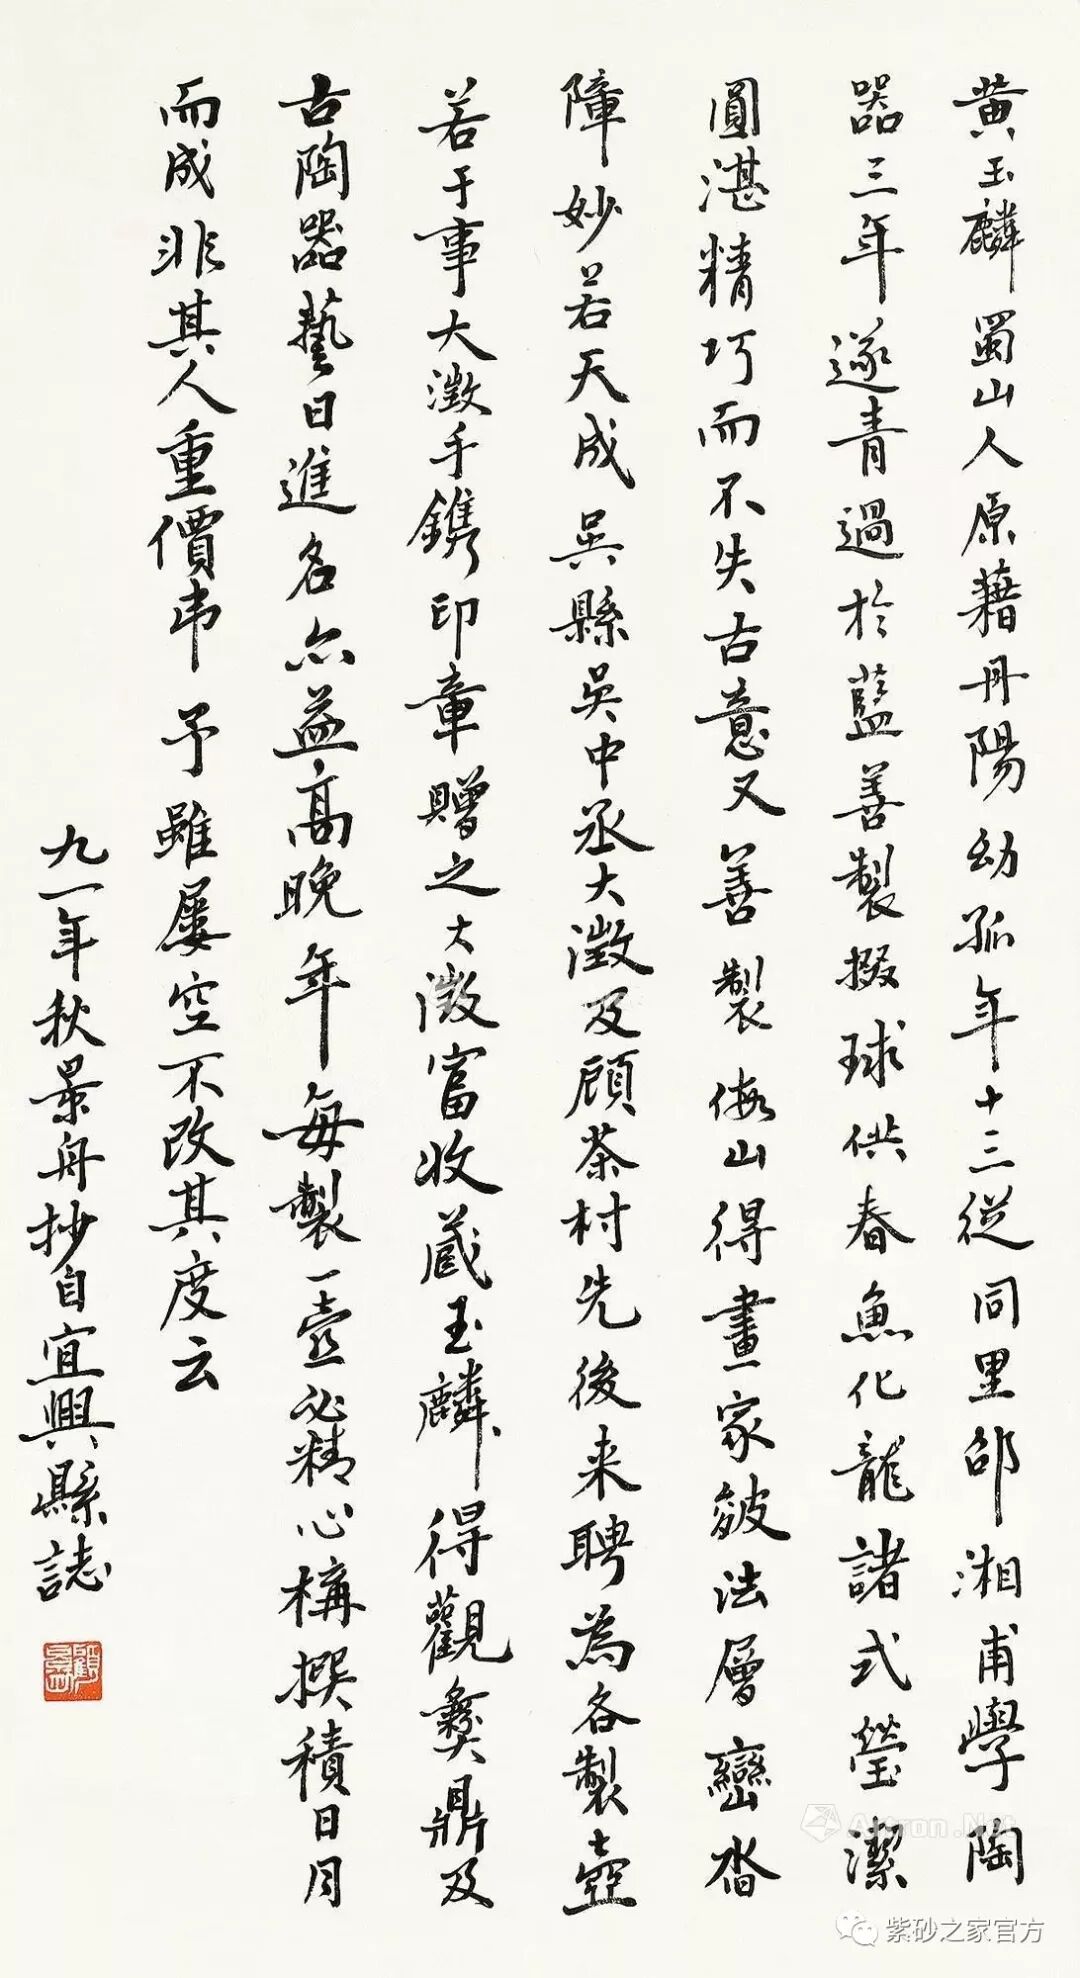 黄玉麟蜀山人原藉丹陽幼孤年十三從同里邵湘甫學陶
器三年遂青過於藍善製掇球供春魚化龍諸式瑩潔
圓湛精巧而不失古意又善製假山得畫家皴法層巒沓
障妙若天成吳縣吳中丞大澂及顧茶村先後来聘為各製壺
若干事大澂手鐫印章贈之大澂富收蔵玉麟得觀彝鼎及
古陶器藝日進名亦益高晚年每製一壺必精心構撰積日月
而成非其人重價弗予雖屢空不改其度云
九一年秋景舟抄自宜興縣誌
顧景舟
Artron.Net
紫砂之家官方